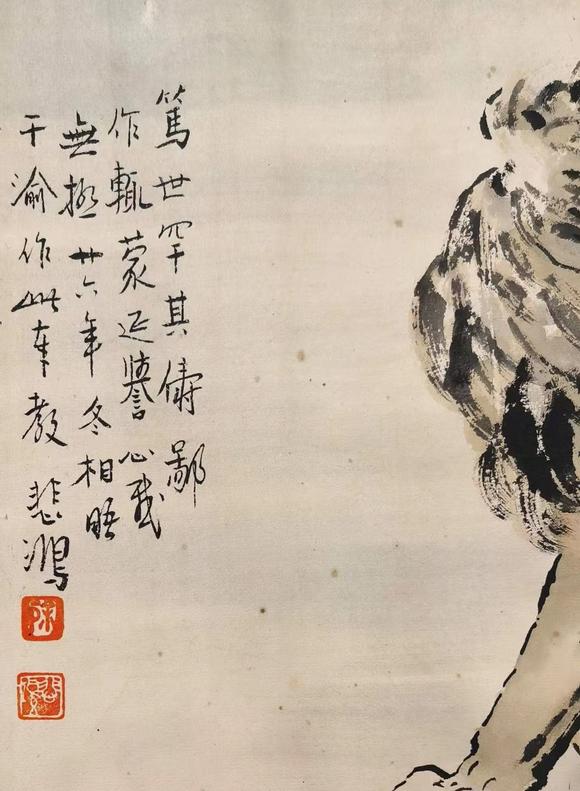 篤世罕其儔鄙
作輒蒙延譽心感
無極廿六年冬相晤
于渝作此奉教 悲鴻